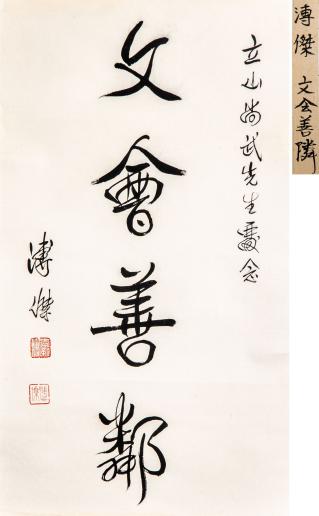 溥傑 文会善隣
立山尚武先生念
文會善鄰
溥傑